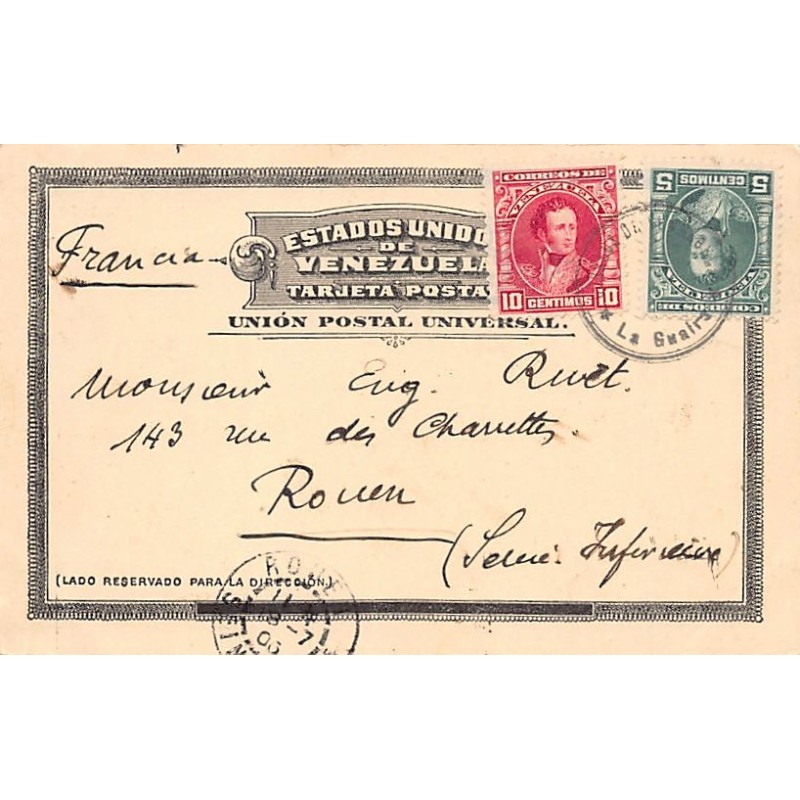 Francia
ESTADOS UNIDO
DE
VENEZUELA
TARJETA POSTA
UNIÓN POSTAL UNIVERSAL.
CORREOS DE
VENEZUELA
10 CENTIMOS 10
5 CENTIMOS 5
VENEZUELA
CORREOS DE
La Guaira
Monsieur Eug. Ruet.
143 rue des Charrettes.
Rouen
(Seine Inferieure)
(LADO RESERVADO PARA LA DIRECCIÓN.)
ROUE